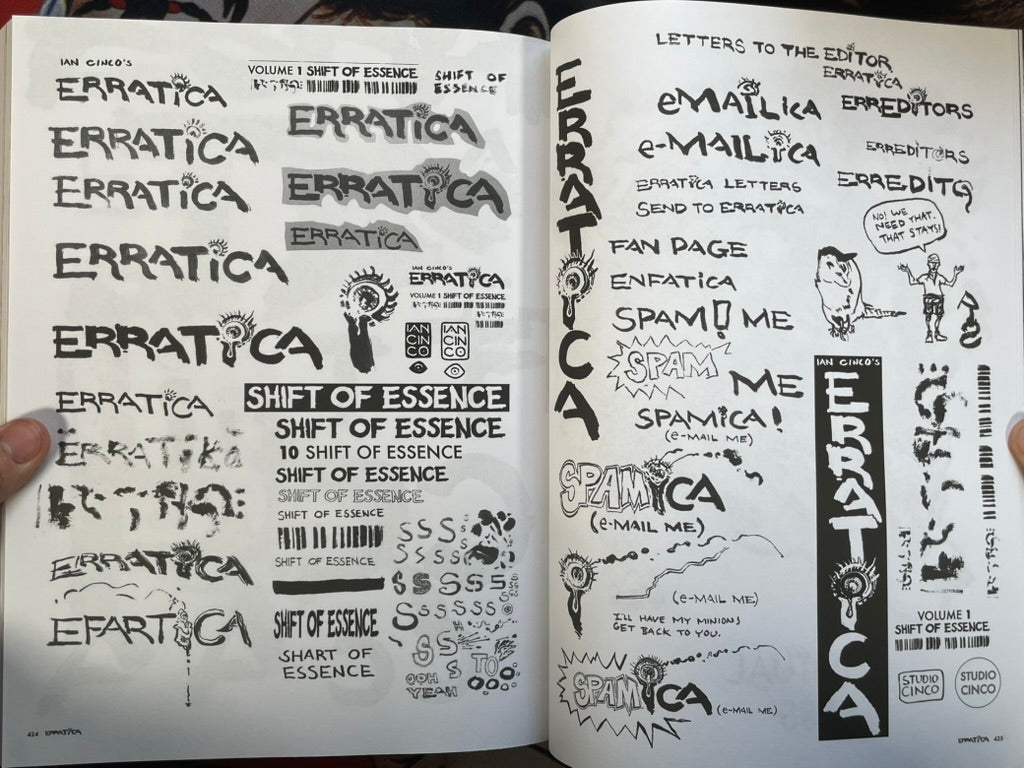 IAN CINCO'S
ERRATICA
ERRATICA
ERRATICA
ERRATICA
ERRATICA
ERRATICA
ERRATIKA
ERRATICA
EFARTiCA
VOLUME 1 SHIFT OF ESSENCE
SHIFT OF
ESSENCE
ERRATICA
ERRATICA
ERRATICA
IAN CINCO'S
ERRATICA
VOLUME 1 SHIFT OF ESSENCE
IAN
CIN
CO
IAN
CIN
CO
SHIFT OF ESSENCE
SHIFT OF ESSENCE
10 SHIFT OF ESSENCE
SHIFT OF ESSENCE
SHIFT OF ESSENCE
SHIFT OF ESSENCE
SHIFT OF ESSENCE
SHIFT OF ESSENCE
SHART OF
ESSENCE
OOH
YEAH
TO
424 ERRATICA
ERRATICA
LETTERS TO THE EDITOR
ERRATICA
eMAILiCA
e-MAILiCA
ERRATICA LETTERS
SEND TO ERRATICA
FAN PAGE
ENFATICA
SPAM! ME
SPAM
ME
SPAMiCA!
(e-MAIL ME)
SPAMiCA
(e-MAIL ME)
(e-MAIL ME)
I'LL HAVE MY MINIONS
GET BACK TO YOU.
SPAMiCA
(e-MAIL ME)
ERREDITORS
ERREDITORS
ERREDITO
NO! WE
NEED THAT.
THAT STAYS!
IAN CINCO'S
ERRATICA
VOLUME 1
SHIFT OF ESSENCE
STUDIO
CINCO
STUDIO
CINCO
ERRATICA 425